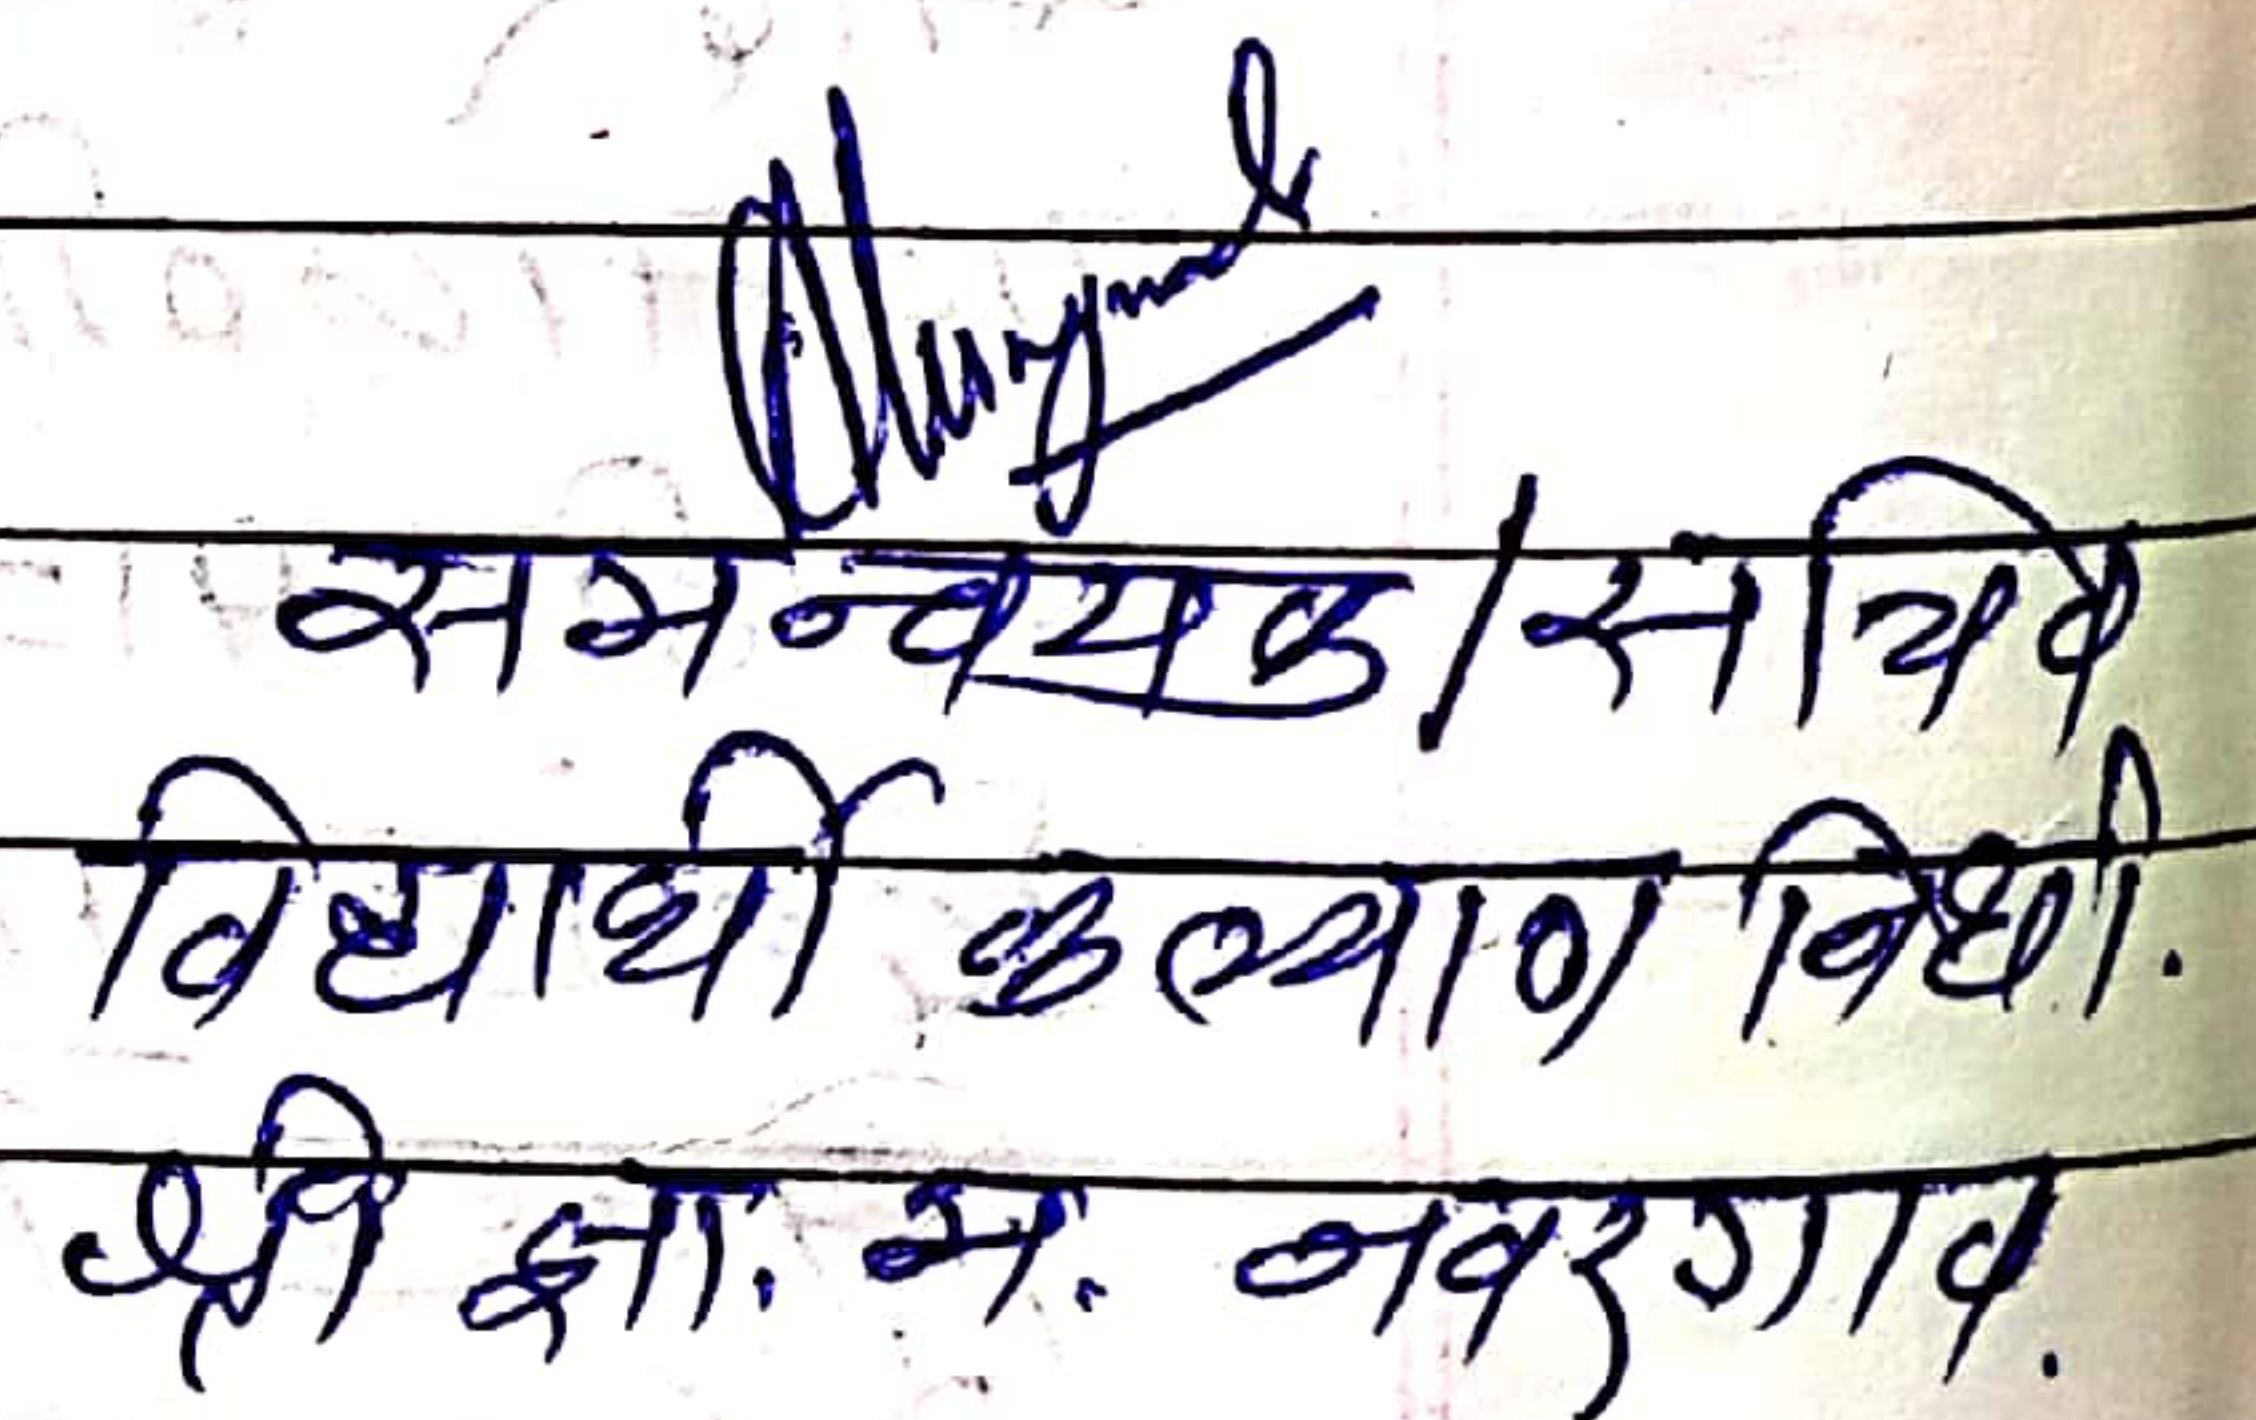 समन्वयक/सचिव
विद्यार्थी कल्याण निधी.
श्री ज्ञा. म. नवरगाव.